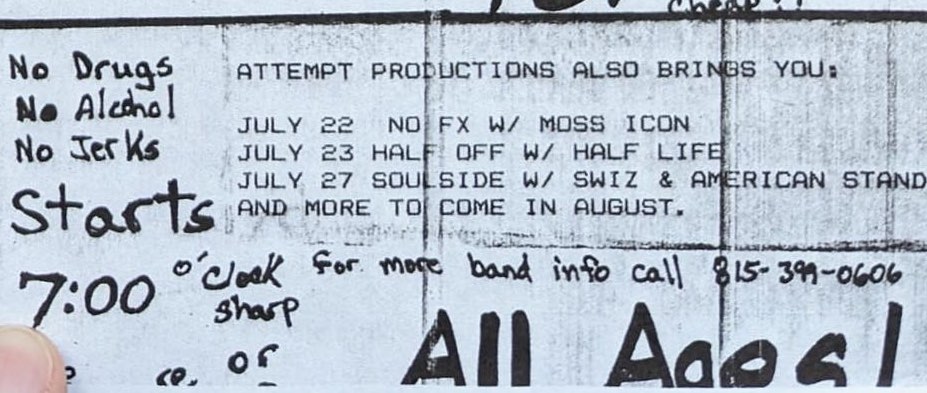 cheap!!
No Drugs
No Alcohol
No Jerks
Starts
7:00 o'clock
sharp
ATTEMPT PRODUCTIONS ALSO BRINGS YOU:
JULY 22 NO FX W/ MOSS ICON
JULY 23 HALF OFF W/ HALF LIFE
JULY 27 SOULSIDE W/ SWIZ & AMERICAN STAND
AND MORE TO COME IN AUGUST.
for more band info call 815-399-0606
or
All Ages!